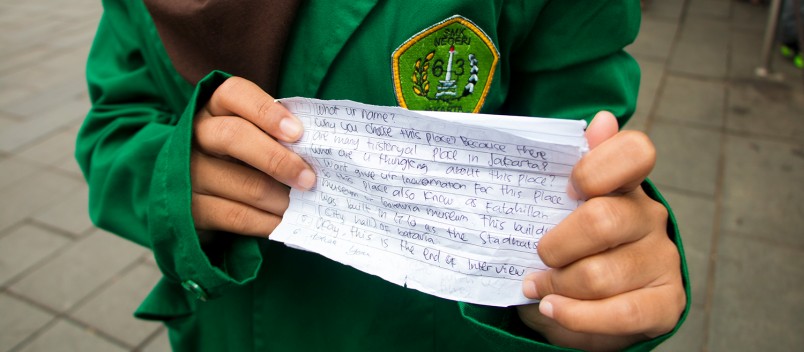 SMK
NEGERI
63
JAKARTA
What ur name?
Why you choose this place? Because there
are many historycal place in Jakarta?
What are u thingking about this place?
I wan't give u information for this place
This place also know as Fatahillah
museum or Batavia museum This buildi
was built in 1710 as the Stadhuis
(City hall) of batavia
Okay, this is the end of Interview